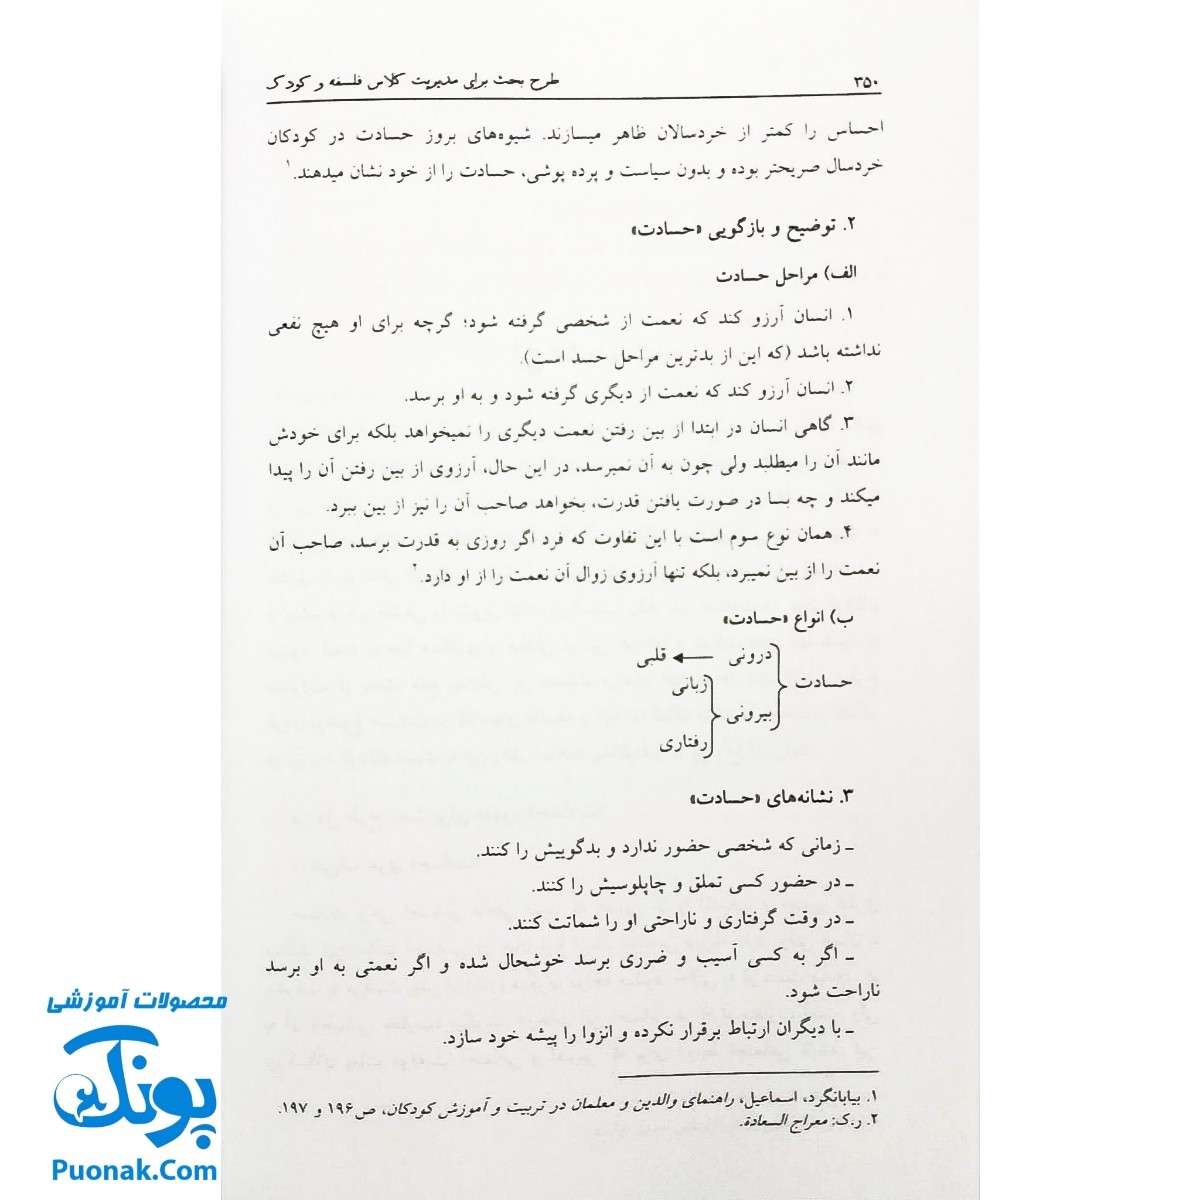 ۳۵۰
طرح بحث برای مدیریت کلاس فلسفه و کودک
احساس را کمتر از خردسالان ظاهر میسازند. شیوه‌های بروز حسادت در کودکان
خردسال صریحتر بوده و بدون سیاست و پرده پوشی، حسادت را از خود نشان میدهند.۱
۲. توضیح و بازگویی «حسادت»
الف) مراحل حسادت
۱. انسان آرزو کند که نعمت از شخصی گرفته شود؛ گرچه برای او هیچ نفعی
نداشته باشد (که این از بدترین مراحل حسد است).
۲. انسان آرزو کند که نعمت از دیگری گرفته شود و به او برسد.
۳. گاهی انسان در ابتدا از بین رفتن نعمت دیگری را نمیخواهد بلکه برای خودش
مانند آن را میطلبد ولی چون به آن نمیرسد، در این حال، آرزوی از بین رفتن آن را پیدا
میکند و چه بسا در صورت یافتن قدرت، بخواهد صاحب آن را نیز از بین ببرد.
۴. همان نوع سوم است با این تفاوت که فرد اگر روزی به قدرت برسد، صاحب آن
نعمت را از بین نمیبرد، بلکه تنها آرزوی زوال آن نعمت را از او دارد.۲
ب) انواع «حسادت»
درونی ← قلبی
حسادت
زبانی
بیرونی
رفتاری
۳. نشانه‌های «حسادت»
ـ زمانی که شخصی حضور ندارد و بدگوییش را کنند.
ـ در حضور کسی تملق و چاپلوسیش را کنند.
ـ در وقت گرفتاری و ناراحتی او را شماتت کنند.
ـ اگر به کسی آسیب و ضرری برسد خوشحال شده و اگر نعمتی به او برسد
ناراحت شود.
ـ با دیگران ارتباط برقرار نکرده و انزوا را پیشه خود سازد.
۱. بیابانگرد، اسماعیل، راهنمای والدین و معلمان در تربیت و آموزش کودکان، ص۱۹۶ و ۱۹۷.
۲. ر.ک: معراج السعادة.
محصولات آموزشی
پونک
Puonak.Com